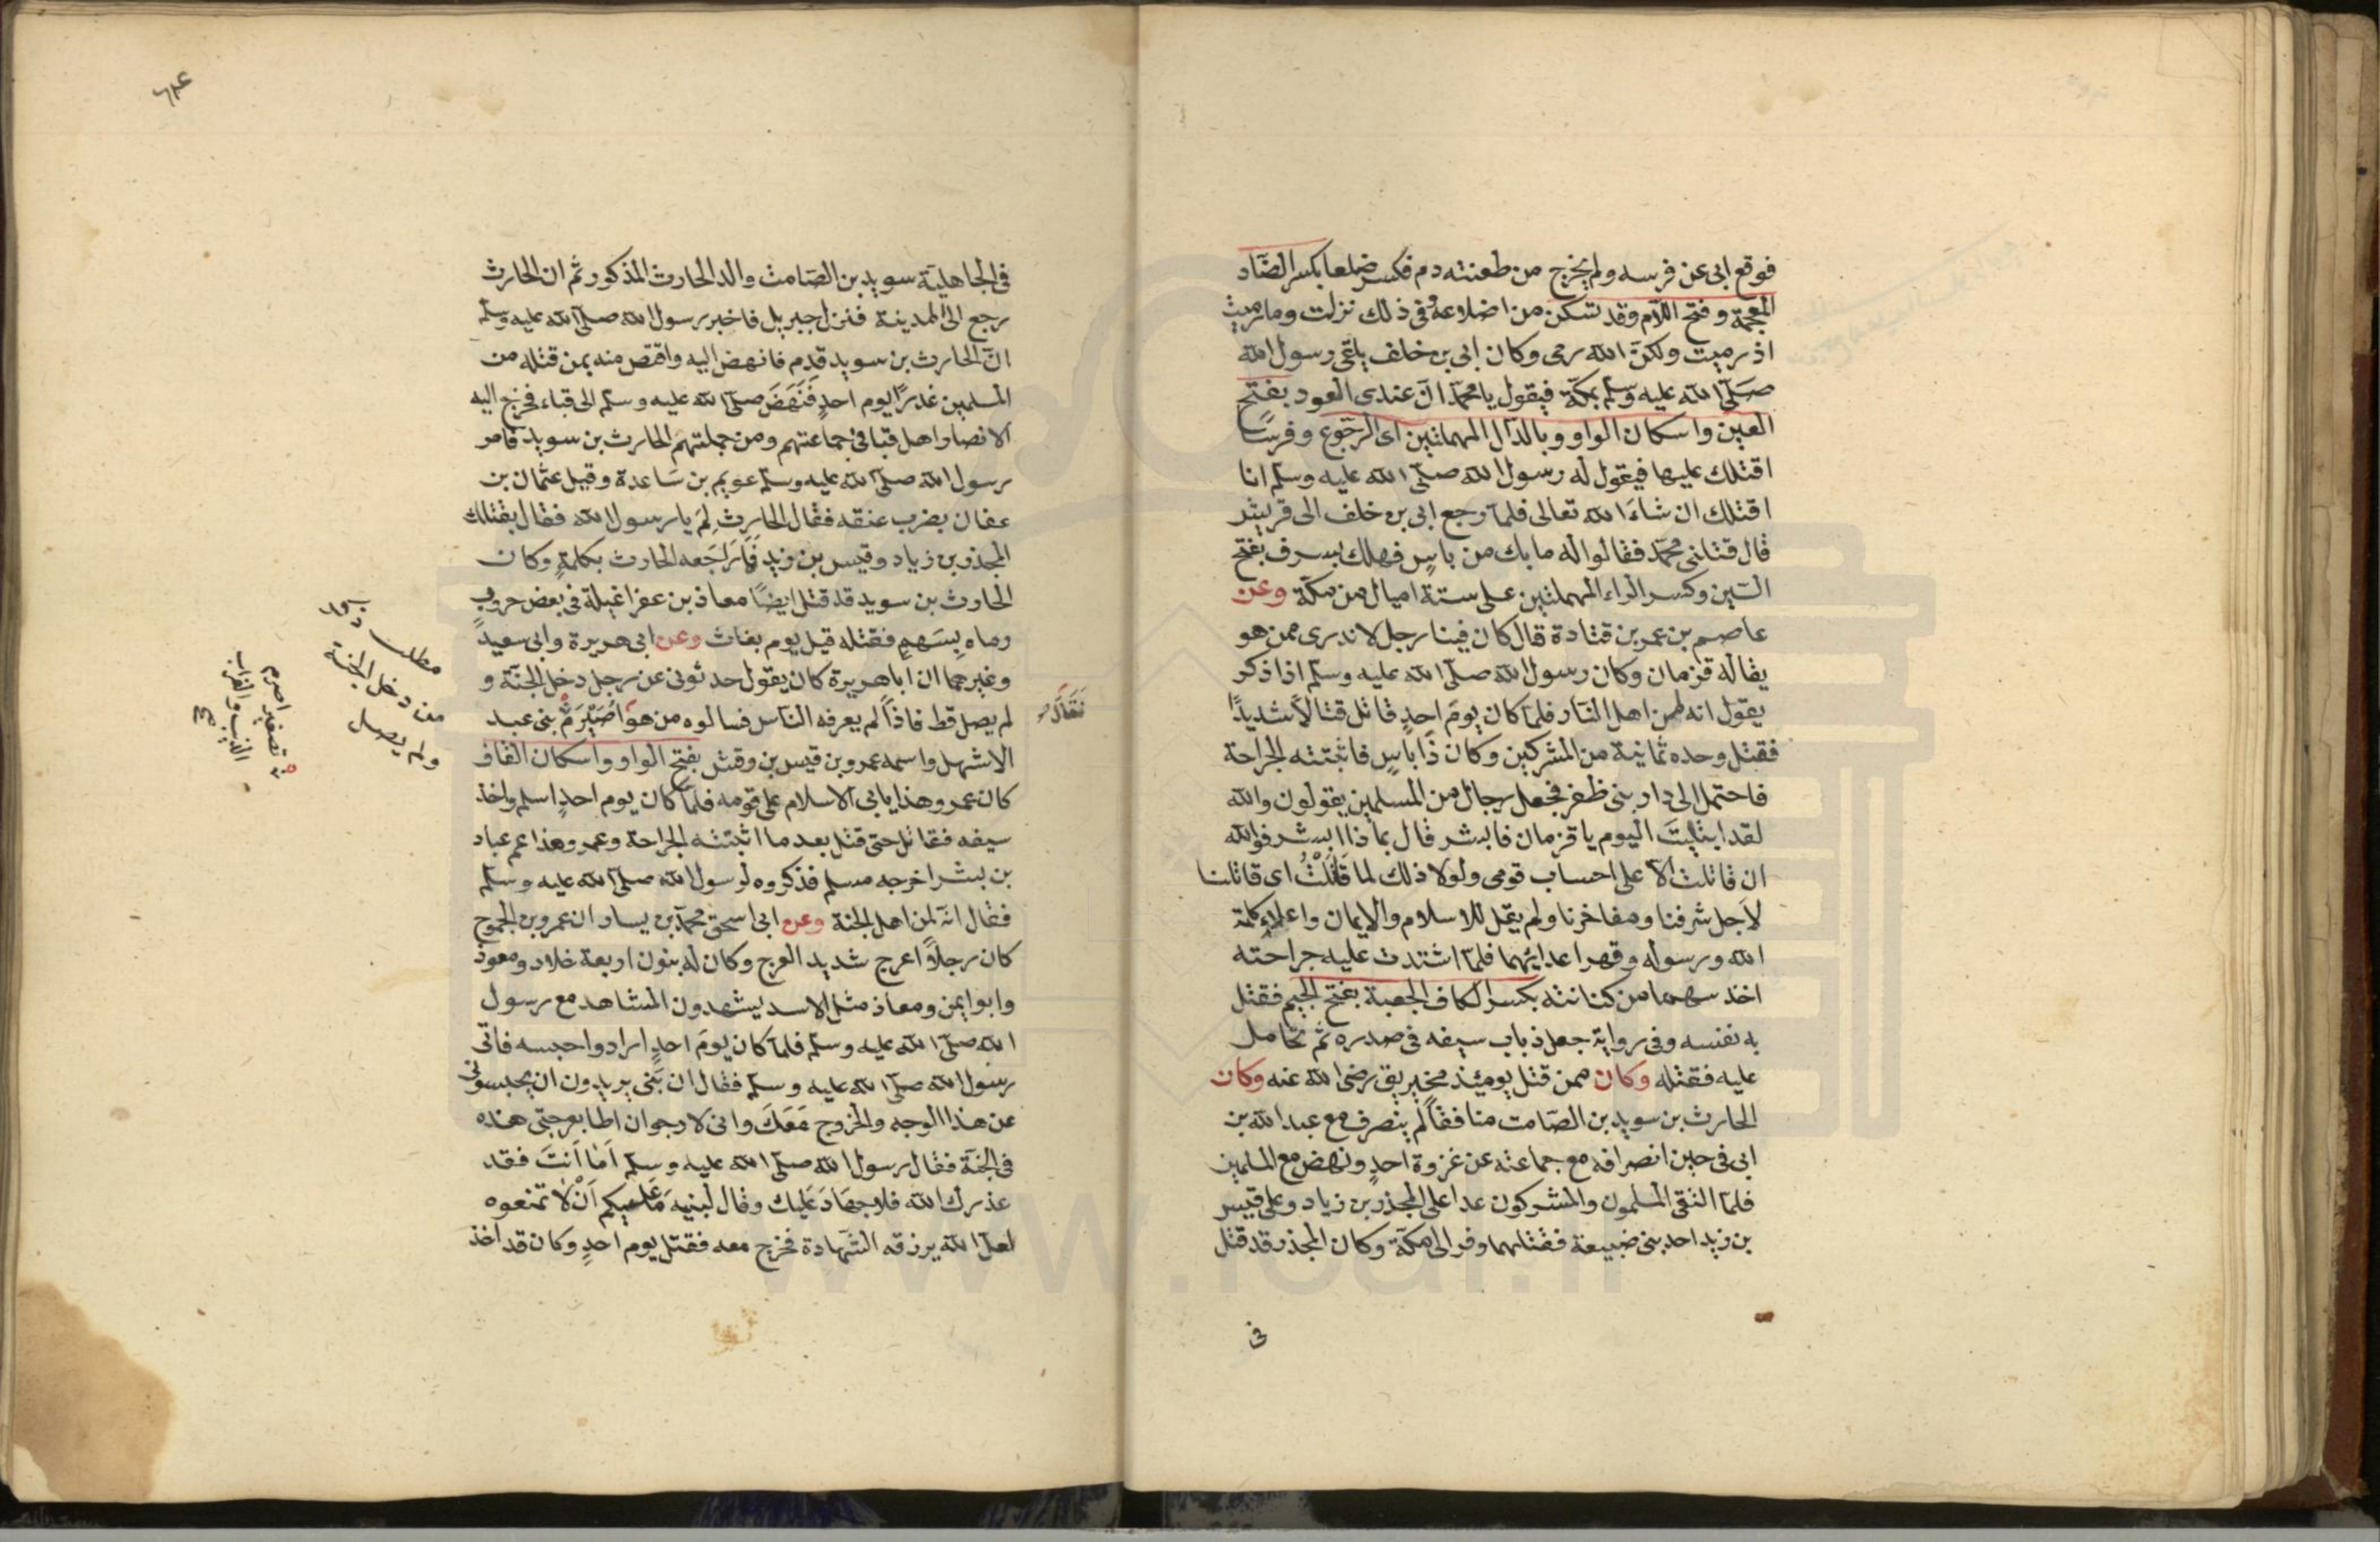 فوقع ابى عن فرسه ولم يخرج من طعنته دم فكسر ضلعا بكسر الضاد
المعجمة وفتح اللام وقد تسكن من اضلاعه ففى ذلك نزلت وما رميت
اذ رميت ولكن الله رمى وكان ابى بن خلف يلقى رسول الله
صلى الله عليه وسلم بمكة فيقول يا محمد ان عندى العود بفتح
العين واسكان الواو وبالدال المهملتين اى الرجوع وفرسًا
اقتلك عليها فيقول له رسول الله صلى الله عليه وسلم انا
اقتلك ان شاء الله تعالى فلما رجع ابى بن خلف الى قريش
قال قتلنى محمد فقالوا له ما بك من باس فهلك بسرف بفتح
السين وكسر الراء المهملتين على ستة اميال من مكة وعن
عاصم بن عمر بن قتادة قال كان فينا رجل لا ندرى ممن هو
يقال له قزمان وكان رسول الله صلى الله عليه وسلم اذا ذكر
يقول انه لمن اهل النار فلما كان يوم احد قاتل قتالا شديدًا
فقتل وحده ثمانية من المشركين وكان ذا باس فاثبتته الجراحة
فاحتمل الى دار بنى ظفر فجعل رجال من المسلمين يقولون والله
لقد ابتليت اليوم يا قزمان فابشر قال بماذا ابشر فوالله
ان قاتلت الا على احساب قومى ولولا ذلك لما قاتلت اى قاتلنا
لاجل شرفنا ومفاخرنا ولم يقل للاسلام والايمان واعلاء كلمة
الله ورسوله وقهر اعدائهما فلما اشتدت عليه جراحته
اخذ سهما من كنانته بكسر الكاف الجعبة بفتح الجيم فقتل
به نفسه وفى رواية جعل ذباب سيفه فى صدره ثم تحامل
عليه فقتله وكان ممن قتل يومئذ مخيريق رضى الله عنه وكان
الحارث بن سويد بن الصامت منافقا لم ينصرف مع عبد الله بن
ابى فى حين انصرافه مع جماعته عن غزوة احد ونهض مع المسلمين
فلما التقى المسلمون والمشركون عدا على المجذر بن زياد وعلى قيس
بن زيد احد بنى ضبيعة فقتلهما وفر الى مكة وكان المجذر قد قتل
فى
فى الجاهلية سويد بن الصامت والد الحارث المذكور ثم ان الحارث
رجع الى المدينة فنزل جبريل فاخبر رسول الله صلى الله عليه وسلم
ان الحارث بن سويد قدم فانهض اليه واقتص منه بمن قتله من
المسلمين غدرًا يوم احد فنهض صلى الله عليه وسلم الى قباء فخرج اليه
الانصار اهل قبا فى جماعتهم ومن جملتهم الحارث بن سويد فامر
رسول الله صلى الله عليه وسلم عويم بن ساعدة وقيل عثمان بن
عفان بضرب عنقه فقال الحارث لم يا رسول الله فقال بقتلك
المجذر بن زياد وقيس بن زيد فما راجعه الحارث بكلمة وكان
الحارث بن سويد قد قتل ايضًا معاذ بن عفرا غيلة فى بعض حروب
رماه بسهم فقتله قبل يوم بعاث وعن ابى هريرة وابى سعيد
وغيرهما ان ابا هريرة كان يقول حدثونى عن رجل دخل الجنة و
لم يصل قط فاذا لم يعرفه الناس فسالوه من هو اصيرم بنى عبد
الاشهل واسمه عمرو بن قيس بن وقش بفتح الواو واسكان القاف
كان عمرو هذا يابى الاسلام على قومه فلما كان يوم احد اسلم واخذ
سيفه فقاتل حتى قتل بعد ما اثبتته الجراحة وعمرو هذا عم عباد
بن بشر اخرجه مسلم فذكروه لرسول الله صلى الله عليه وسلم
فقال انه لمن اهل الجنة وعن ابى اسحق محمد بن يسار ان عمرو بن الجموح
كان رجلا اعرج شديد العرج وكان له بنون اربعة خلاد ومعوذ
وابو ايمن ومعاذ مثل الاسد يشهدون المشاهد مع رسول
الله صلى الله عليه وسلم فلما كان يوم احد ارادوا حبسه فاتى
رسول الله صلى الله عليه وسلم فقال ان بنى يريدون ان يحبسونى
عن هذا الوجه والخروج معك وانى لارجو ان اطا بعرجتى هذه
فى الجنة فقال رسول الله صلى الله عليه وسلم اما انت فقد
عذرك الله فلا جهاد عليك وقال لبنيه ما عليكم ان لا تمنعوه
لعل الله يرزقه الشهادة فخرج معه فقتل يوم احد وكان قد اخذ
فقال
مطلب
من دخل الجنة
ولم يصل
تصغير اصرم